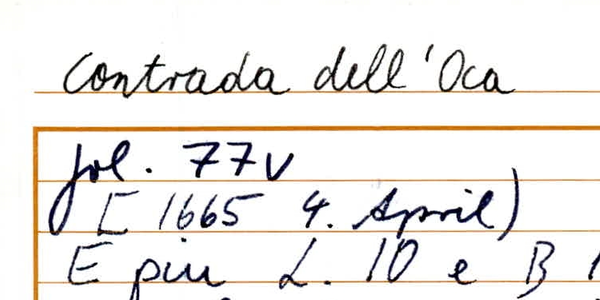 Contrada dell'Oca
fol. 77v
[ 1665 4. April)
E piu L. 10 e B